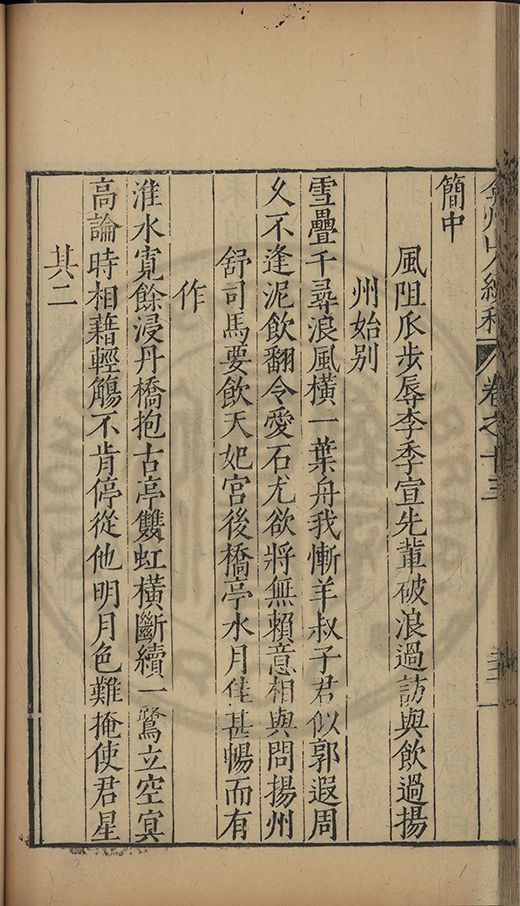 弇州山人續稿 卷之十三
簡中
風阻瓜步辱李季宣先輩破浪過訪與飲過揚
州始別
雪疊千尋浪風橫一葉舟我慚羊叔子君似郭遐周
久不逢泥飲翻令愛石尤欲將無賴意相與問揚州
舒司馬要飲天妃宮後橋亭水月佳甚暢而有
作
淮水寬餘浸丹橋抱古亭雙虹橫斷續一鷺立空冥
高論時相藉輕觴不肯停從他明月色難掩使君星
其二